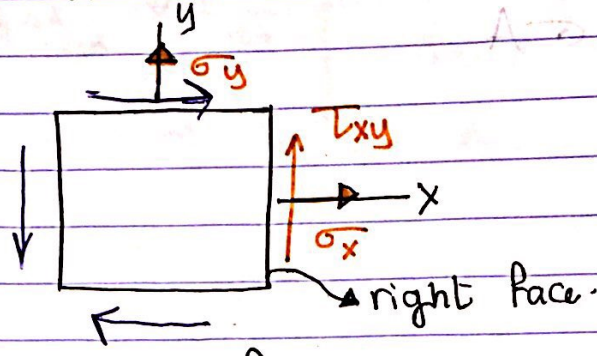 y
σy
τxy
x
σx
right face.